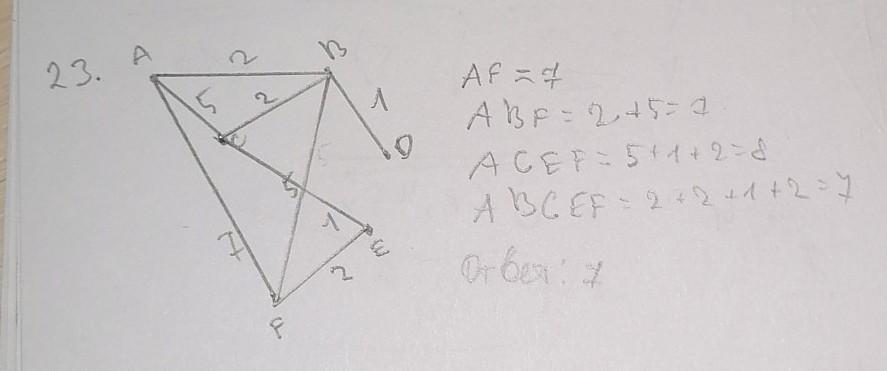 23.
A
2
B
5
2
1
C
D
5
5
1
E
7
2
F
AF = 7
ABF = 2+5=7
ACEF = 5+1+2=8
ABCEF = 2+2+1+2=7
Ответ: 7